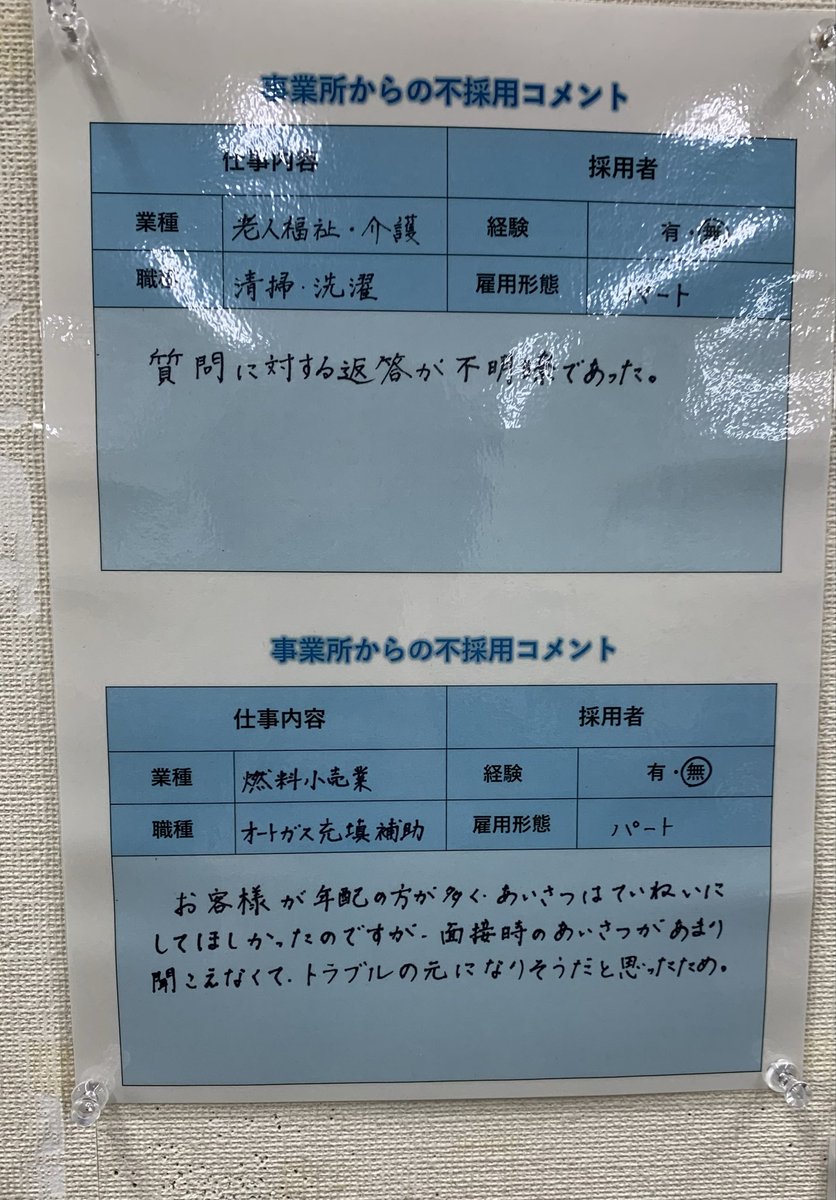 事業所からの不採用コメント
仕事内容 採用者
業種 老人福祉・介護 経験 有・無
職種 清掃・洗濯 雇用形態 パート
質問に対する返答が不明瞭であった。
事業所からの不採用コメント
仕事内容 採用者
業種 燃料小売業 経験 有・無
職種 オートガス充填補助 雇用形態 パート
お客様が年配の方が多く、あいさつはていねいに
してほしかったのですが、面接時のあいさつがあまり
聞こえなくて、トラブルの元になりそうだと思ったため。